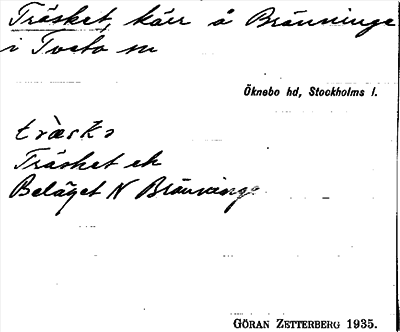 Träsket, kärr å Bränninge
i Tveta sn
Öknebo hd, Stockholms l.
Träsket ek
Beläget N Bränninge
GÖRAN ZETTERBERG 1935.